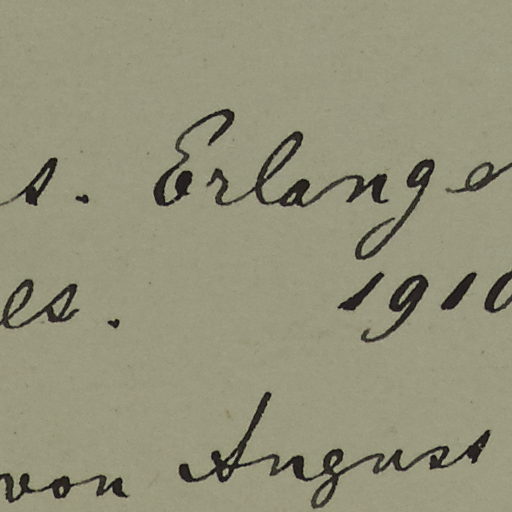 s. Erlange
es. 1910
von August